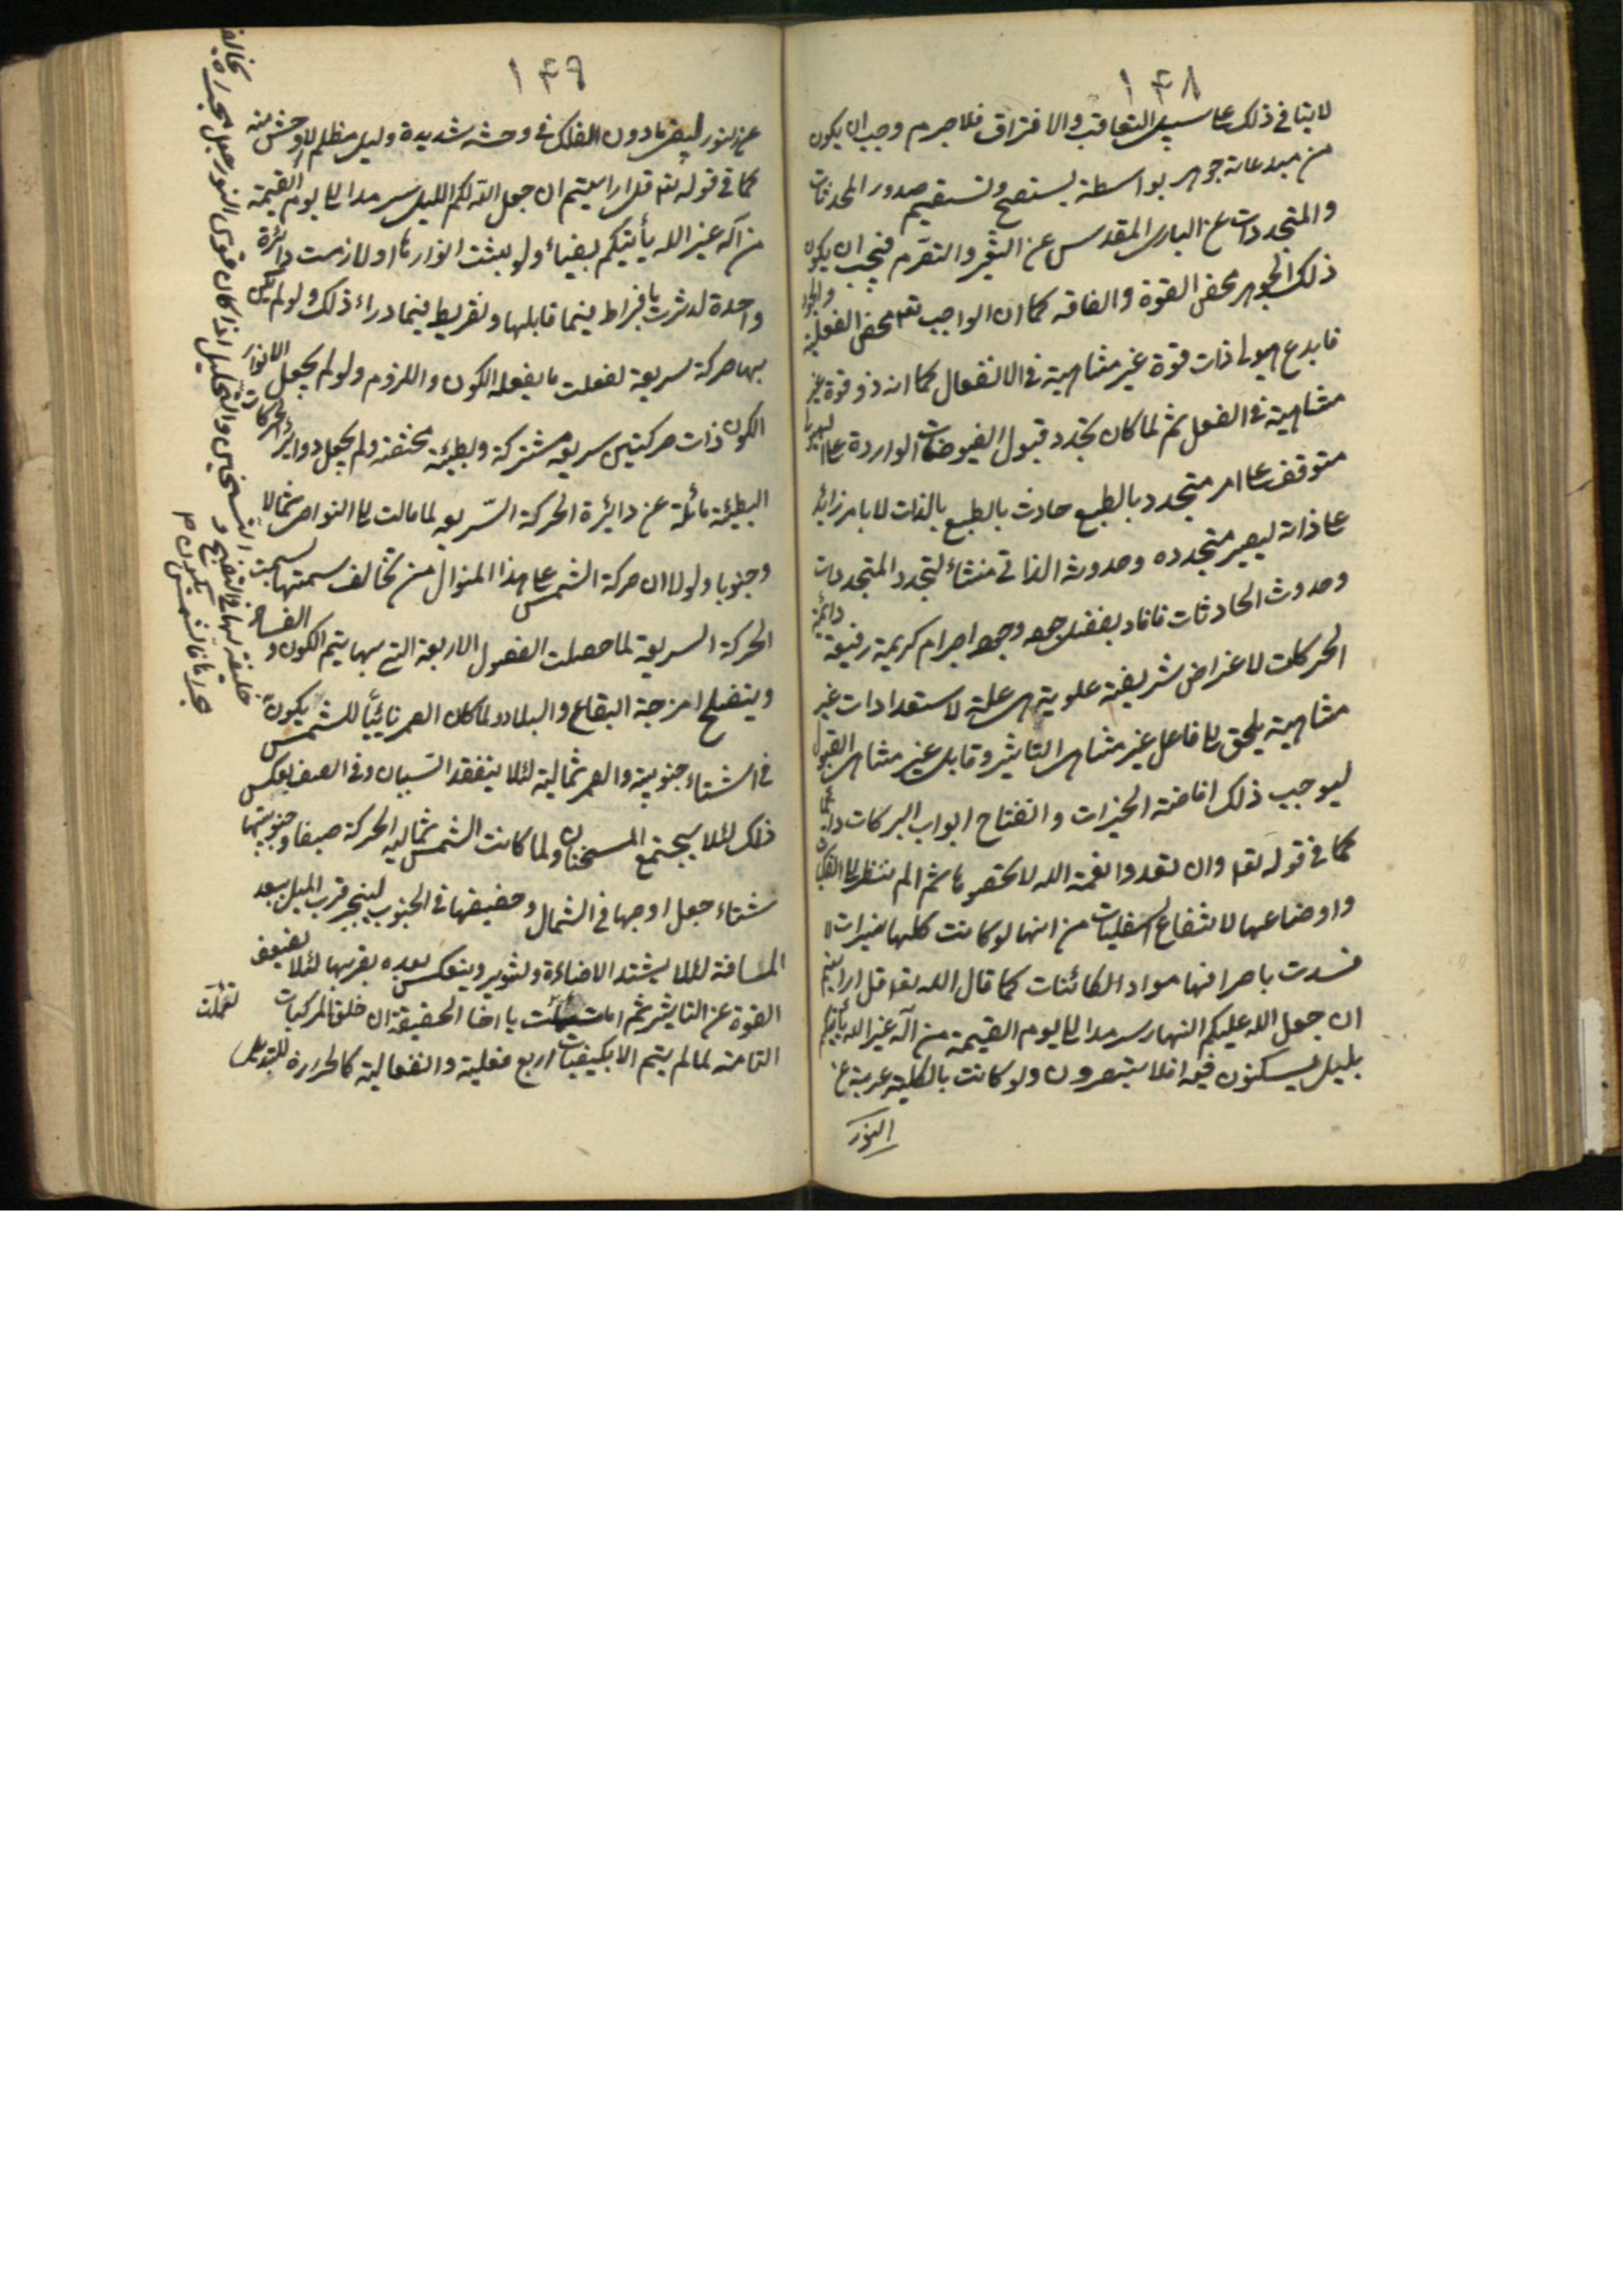 ١٤٨
لا ينافى ذلك على سبيل التعاقب والافتراق فلا جرم وجب ان يكون
من مبدعاته جوهر بواسطة يستصح ويستقيم صدور المحدثات
والمتجددات عن البارى المقدس عن التغير والتصرم فيجب ان يكون
ذلك الجوهر محض القوة والفاقه كما ان الواجب تعم محض الفعلية والجود
فابدع هيولى ذات قوة غير متناهية فى الانفعال كما انه ذو قوة غير
متناهية فى الفعل ثم لما كان تجدد قبول الفيوضات الواردة على الهيولى
متوقف على امر متجدد بالطبع حادث بالطبع بالذات لا بامر زائد
على ذاته ليصير متجدده وحدوثه الذاتى منشاء لتجدد المتجددات
وحدوث الحادثات فافاد بفضل جوده وجود اجرام كريمة رفيعة دائمة
الحركات لاغراض شريفة علوية هى علة لاستعدادات غير
متناهية يلحق الى فاعل غير متناهى التاثير وقابل غير متناهى القبول
ليوجب ذلك افاضة الخيرات وانفتاح ابواب البركات دائما
كما فى قوله تعا وان تعدوا نعمة الله لا تحصوها ثم الم تنظر الى الفلكيات
واوضاعها لانتفاع السفليات من انها لو كانت كلها نيرات لا
فسدت باحراقها مواد الكائنات كما قال الله تعا قل ارايتم
ان جعل الله عليكم النهار سرمدا الى يوم القيمة من آله غير الله يأتيكم
بليل تسكنون فيه افلا تبصرون ولو كانت بالكلية عرية عن
النور
١٤٩
عن النور لبقى مادون الفلك فى وحشة شديدة وليل مظلم لا اوحش منه
كما فى قوله تعا قل ارايتم ان جعل الله لكم الليل سرمدا الى يوم القيمة
من آله غير الله يأتيكم بضياء ولو ثبتت انوارها او لازمت دائرة
واحدة لدثرت بافراط فيما قابلها وتفريط فيما وراء ذلك ولو لم يكن
بها حركة سريعة لفعلت ما يفعله الكون واللزوم ولو لم يجعل الانوار
الكون ذات حركتين سريعة مشتركة وبطيئة مختصة ولم يجعل دوائر الحركات
البطيئة مائلة عن دايرة الحركة السريعة لما مالت الى النواحى شمالا
وجنوبا ولولا ان حركة الشمس على هذا المنوال من تخالف سمتها لسمت
الحركة السريعة لما حصلت الفصول الاربعة التى بها يتم الكون والفساد
وينصلح امزجة البقاع والبلاد ولما كان القمر نائيا للشمس يكون
فى الشتاء جنوبية والقمر شمالية لئلا ينفقد السببان وفى الصيف بعكس
ذلك لئلا يجتمع المسخنان ولما كانت الشمس شمالية الحركة صيفا وجنوبيتها
شتاء جعل اوجها فى الشمال وحضيضها فى الجنوب لينجبر قرب الميل ببعد
المسافة لئلا يشتد الاضاءة والتنوير وينعكس بعده بقربها لئلا يضعف
القوة عن التاثير ثم اما تأملت يا اخا الحقيقة ان خلق المركبات
التامة لما لم يتم الا بكيفيات اربع فعلية وانفعالية كالحرارة للتحليل
خليفة لها فى النضج و التسخين والتحليل اذا كان قوى النور جعل مجراه يخالف
مجراها فالشمس يكون